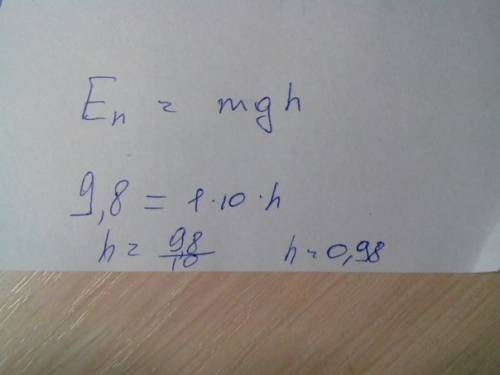 Eп = mgh
9,8 = 1·10·h
h = 9,8/10 h = 0,98